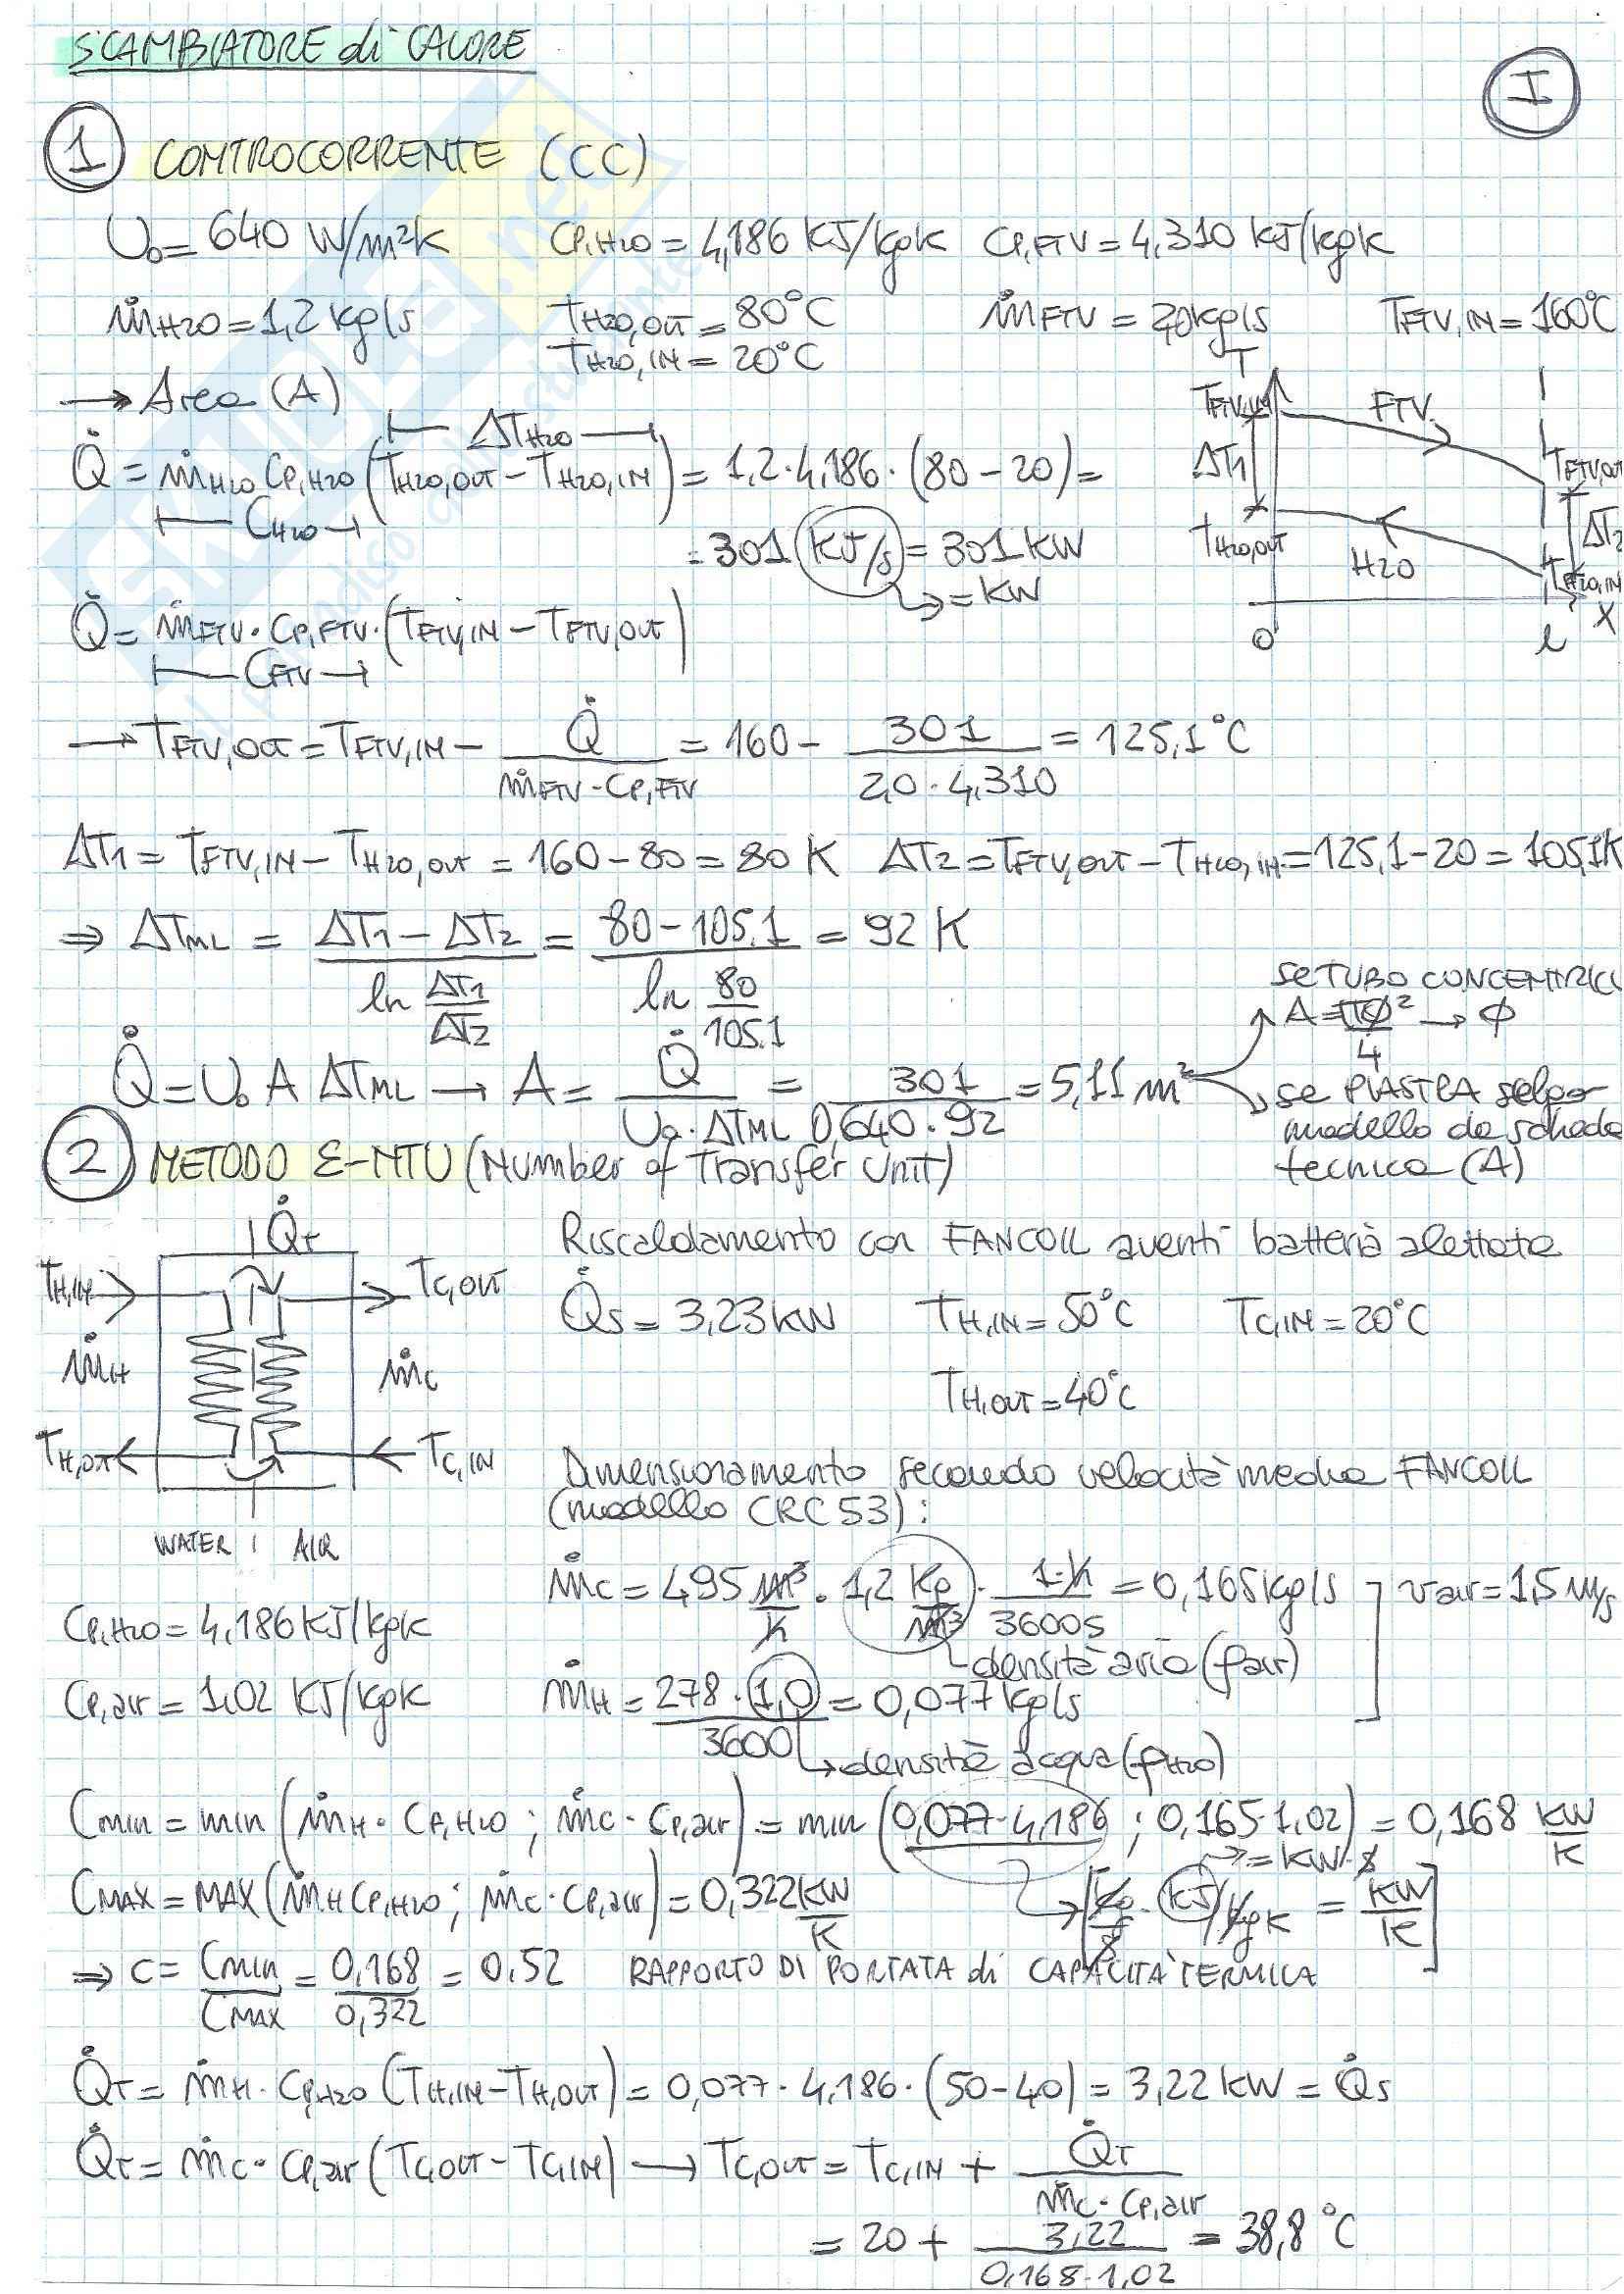 SCAMBIATORE di CALORE
I
1 CONTROCORRENTE (CC)
U₀ = 640 W/m²K   CP,H2O = 4,186 KJ/kgK   CP,FTV = 4,310 KJ/kgK
ṁH2O = 1,2 kg/s   TH2O,OUT = 80°C   ṁFTV = 2,0 kg/s   TFTV,IN = 160°C
TH2O,IN = 20°C
→ Area (A)
ΔTH2O
Q̇ = ṁH2O CP,H2O (TH2O,OUT − TH2O,IN) = 1,2 · 4,186 · (80 − 20) =
CH2O
= 301 KJ/s = 301 KW
→ = KW
T
TFTV,IN
FTV
ΔT1
TFTV,OUT
TH2O,OUT
H2O
ΔT2
TH2O,IN
0
l
X
Q̇ = ṁFTV · CP,FTV · (TFTV,IN − TFTV,OUT)
CFTV
→ TFTV,OUT = TFTV,IN − Q̇ / (ṁFTV · CP,FTV) = 160 − 301 / (2,0 · 4,310) = 125,1°C
ΔT1 = TFTV,IN − TH2O,OUT = 160 − 80 = 80 K   ΔT2 = TFTV,OUT − TH2O,IN = 125,1 − 20 = 105,1K
⇒ ΔTML = (ΔT1 − ΔT2) / (ln ΔT1/ΔT2) = (80 − 105.1) / (ln 80/105.1) = 92 K
Q̇ = U₀ A ΔTML → A = Q̇ / (U₀ · ΔTML) = 301 / (0,640 · 92) = 5,11 m²
se TUBO CONCENTRICI
A = πØ²/4 → Ø
se PIASTRA selgo
modello da scheda
tecnica (A)
2 METODO ε-NTU (Number of Transfer Unit)
Q̇T
TH,IN
TC,OUT
ṁH
ṁC
TH,OUT
TC,IN
WATER   AIR
Riscaldamento con FANCOIL aventi batteria alettata
Q̇S = 3,23 KW   TH,IN = 50°C   TC,IN = 20°C
TH,OUT = 40°C
Dimensionamento secondo velocità media FANCOIL
(modello CRC 53):
ṁC = 495 m³/h · 1,2 Kg/m³ · 1 h/3600s = 0,165 kg/s   vair = 1,5 m/s
densità aria (ρair)
CP,H2O = 4,186 KJ/kgK
CP,air = 1,02 KJ/kgK
ṁH = 278 · 1,0 / 3600 = 0,077 kg/s
→ densità acqua (ρH2O)
Cmin = min (ṁH · CP,H2O ; ṁC · CP,air) = min (0,077 · 4,186 ; 0,165 · 1,02) = 0,168 KW/K
→ = KW · s
CMAX = MAX (ṁH CP,H2O ; ṁC · CP,air) = 0,322 KW/K
→ [kg/s · KJ/kgK = KW/K]
⇒ C = Cmin/CMAX = 0,168/0,322 = 0,52   RAPPORTO DI PORTATA di CAPACITÀ TERMICA
Q̇T = ṁH · CP,H2O (TH,IN − TH,OUT) = 0,077 · 4,186 · (50 − 40) = 3,22 KW = Q̇S
Q̇T = ṁC · CP,air (TC,OUT − TC,IN) → TC,OUT = TC,IN + Q̇T / (ṁC · CP,air)
= 20 + 3,22 / (0,168 · 1,02) = 38,8 °C